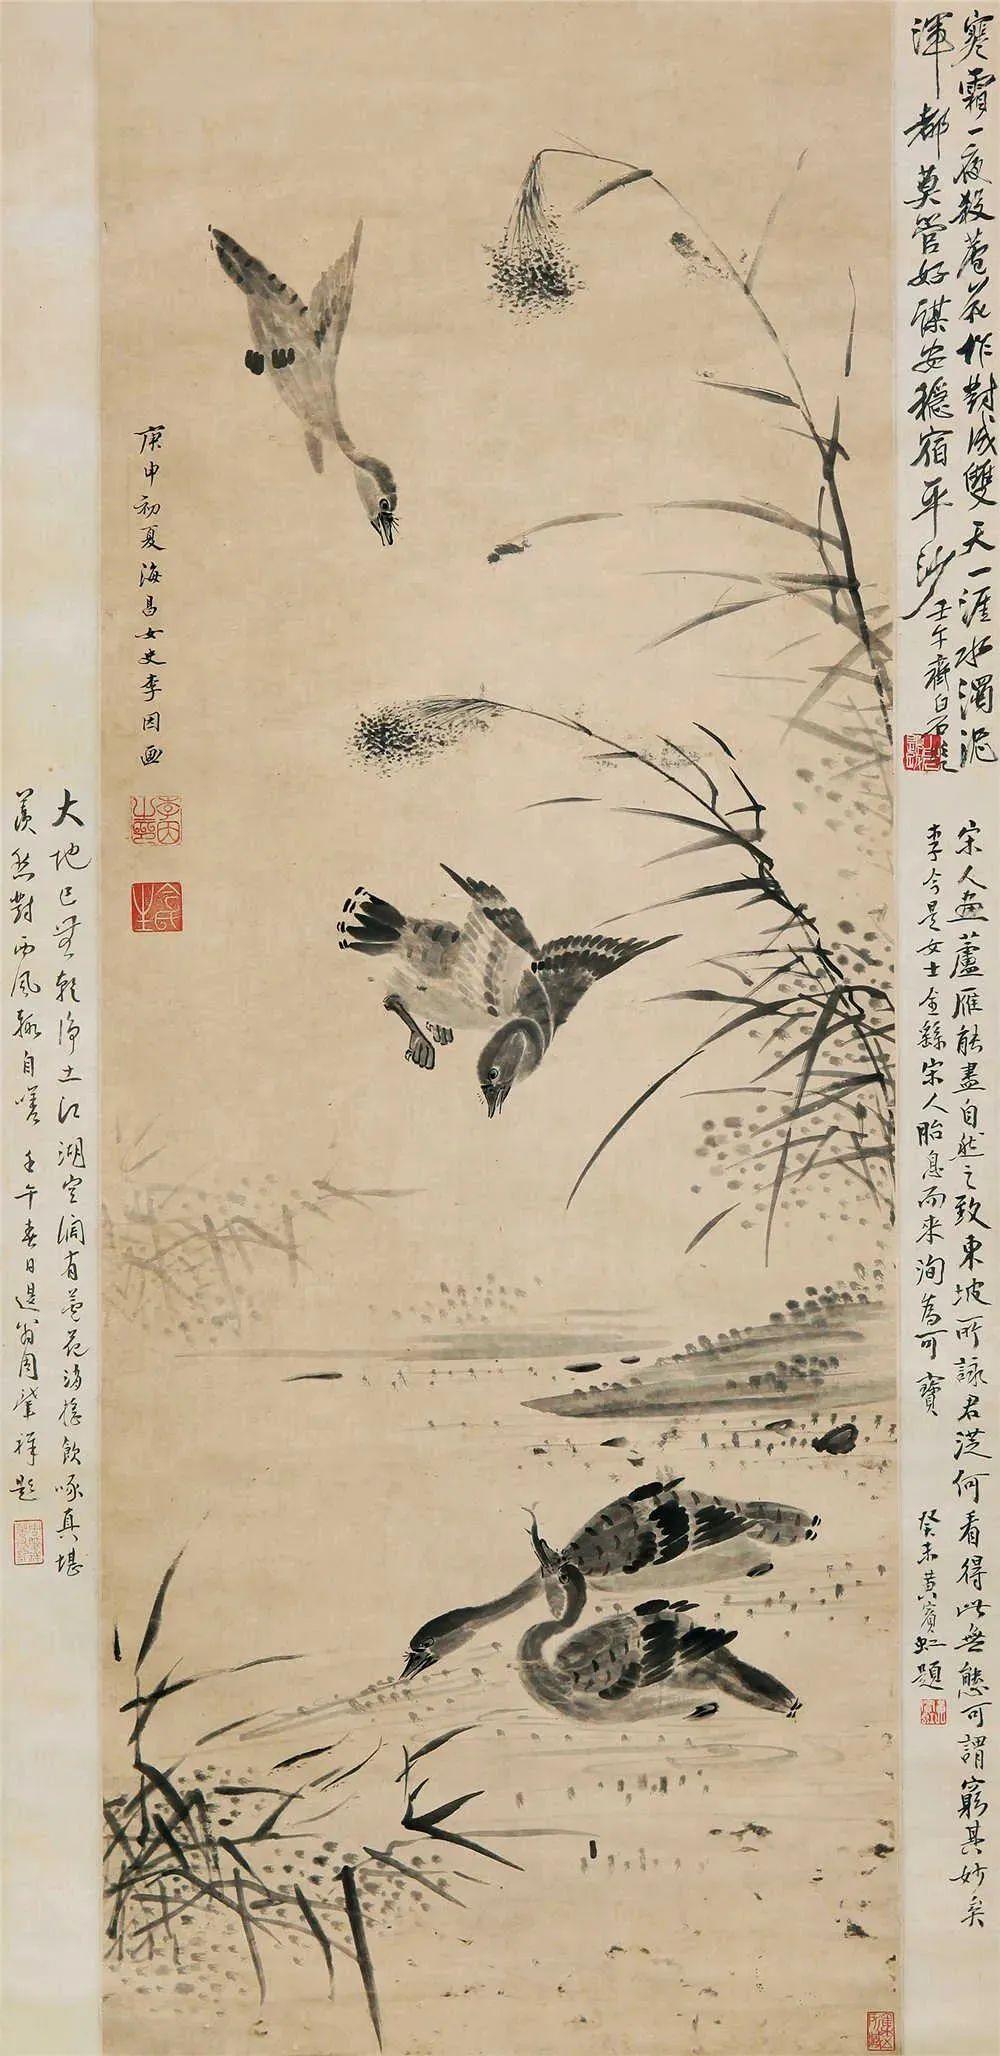 寒霜一夜殺蘆花作對成雙天一涯水濁泥
渾都莫管好謀安穩宿平沙
壬午齊白石題
宋人畫蘆雁能盡自然之致東坡所詠君從何看得此無態可謂窮其妙矣
李今是女士全繇宋人胎息而來洵為可寶
癸未黃賓虹題
庚申初夏海昌女史李因画
大地已無乾淨土江湖空濶有蘆花消搖飲啄真堪
羨愁對西風輙自嗟
壬午春日退翁周肇祥題